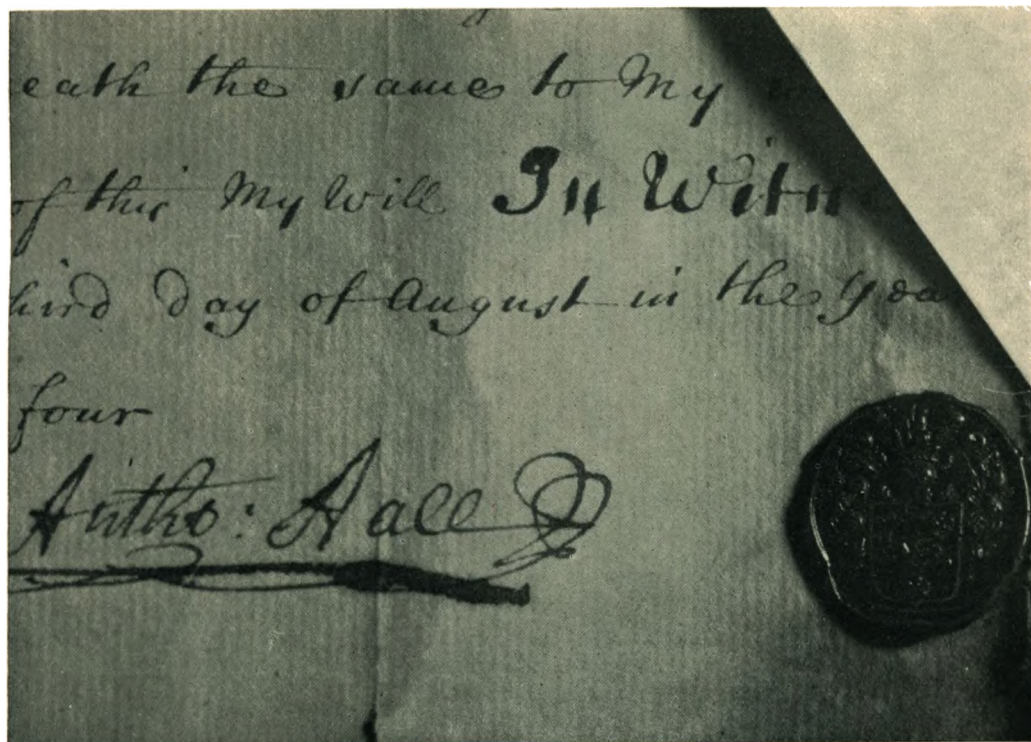 eath the same to My
of this My Will In Witn
hird day of August in the yea
four
Antho: Hall